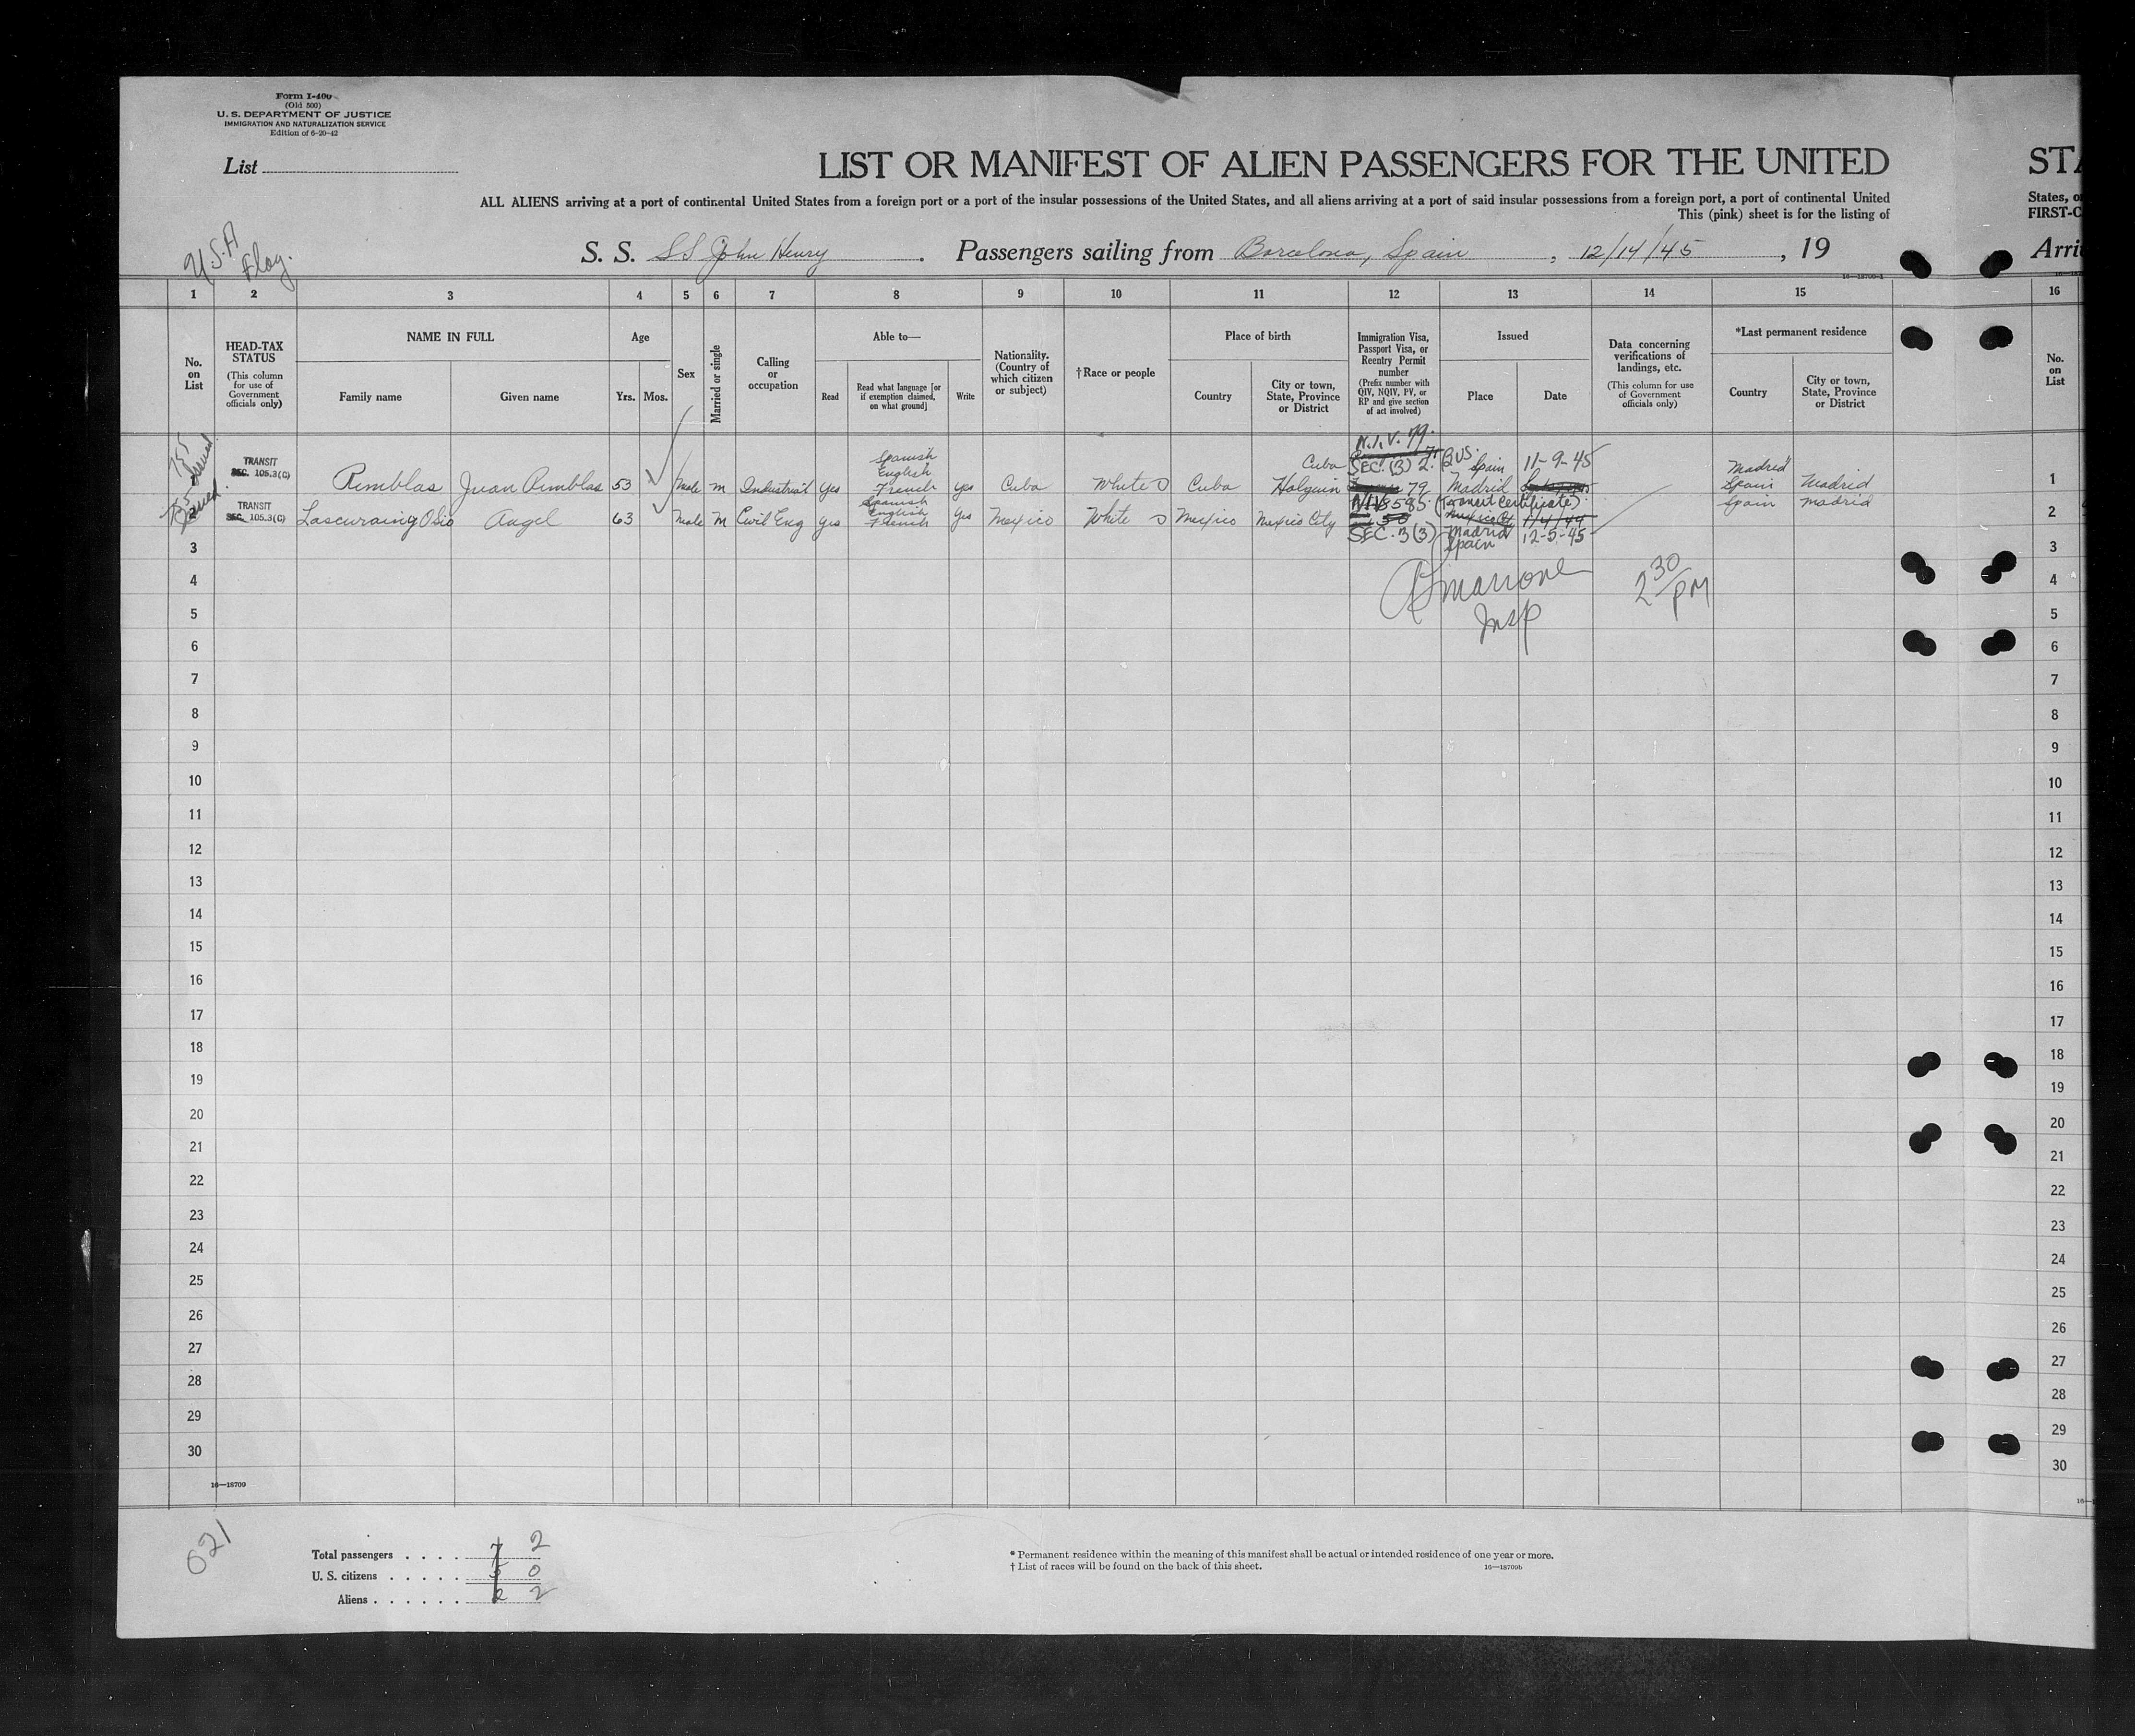 Form I-400
(Old 500)
U. S. DEPARTMENT OF JUSTICE
IMMIGRATION AND NATURALIZATION SERVICE
Edition of 6-20-42
List
LIST OR MANIFEST OF ALIEN PASSENGERS FOR THE UNITED
STA
ALL ALIENS arriving at a port of continental United States from a foreign port or a port of the insular possessions of the United States, and all aliens arriving at a port of said insular possessions from a foreign port, a port of continental United
States, o
This (pink) sheet is for the listing of
FIRST-C
U.S.A
Flag.
S. S. SS John Henry . Passengers sailing from Barcelona, Spain , 12/14/45 , 19
Arri
16—18700-1
1 2 3 4 5 6 7 8 9 10 11 12 13 14 15 16
No. on List
HEAD-TAX STATUS
(This column for use of Government officials only)
NAME IN FULL
Family name
Given name
Age
Yrs. Mos.
Sex
Married or single
Calling or occupation
Able to—
Read
Read what language [or if exemption claimed, on what ground]
Write
Nationality. (Country of which citizen or subject)
†Race or people
Place of birth
Country
City or town, State, Province or District
Immigration Visa, Passport Visa, or Reentry Permit number
(Prefix number with QIV, NQIV, PV, or RP and give section of act involved)
Issued
Place
Date
Data concerning verifications of landings, etc.
(This column for use of Government officials only)
*Last permanent residence
Country
City or town, State, Province or District
No. on List
TRANSIT
SEC. 105.3(C)
Rimblas Juan Rimblas 53 Male M Industrial yes Spanish English French yes Cuba White Cuba Holguin Cuba N.I.V. 79. SEC. (3) 2. 79 Spain Madrid 11-9-45 Madrid Spain Madrid 1
TRANSIT
SEC. 105.3(C)
Lascuraing Osio Angel 63 Male M Civil Eng yes Spanish English French yes Mexico White Mexico Mexico City (Transit Certificate) SEC. 3(3) Madrid Spain 12-5-45 Spain Madrid 2
3 3
4 4
2 30/PM
Insp
5 5
6 6
7 7
8 8
9 9
10 10
11 11
12 12
13 13
14 14
15 15
16 16
17 17
18 18
19 19
20 20
21 21
22 22
23 23
24 24
25 25
26 26
27 27
28 28
29 29
30 30
16—18709
021
Total passengers . . . . 7 2
U. S. citizens . . . . . 5 0
Aliens . . . . . . 2 2
* Permanent residence within the meaning of this manifest shall be actual or intended residence of one year or more.
† List of races will be found on the back of this sheet.
16—18709b